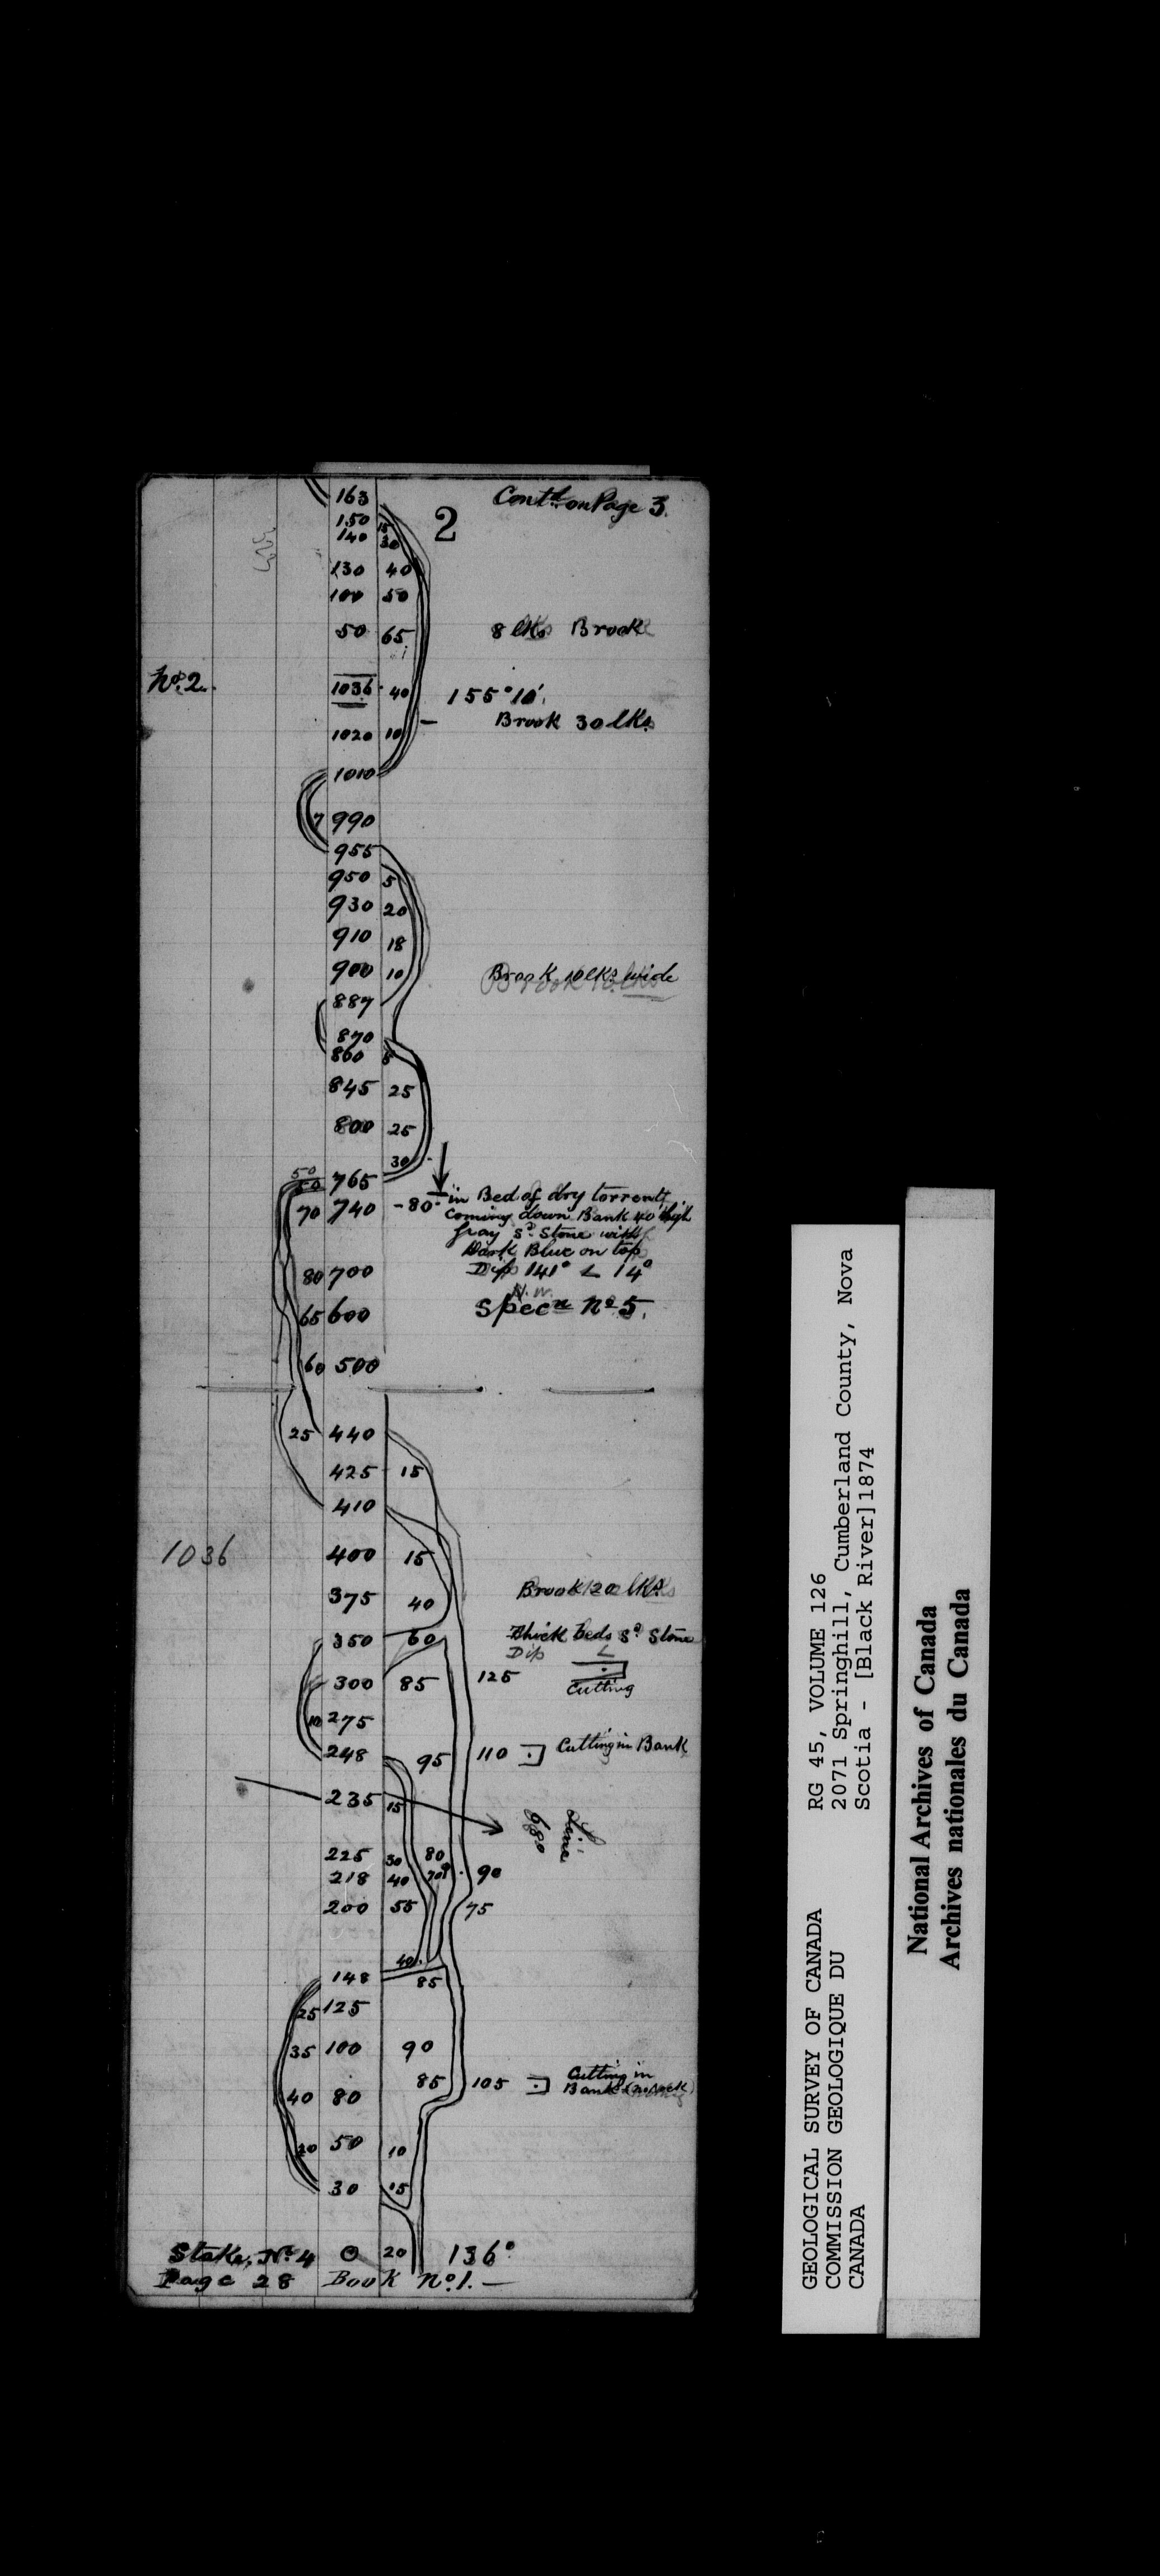 163 Contd. on Page 3.
150 15 2
140 30
130 40
100 50
50 65 8 lks Brook
No. 2. 1036 40 155° 10'
Brook 30 lks.
1020 10
1010
7 990
955
950 5
930 20
910 18
900 10 Brook 10 lks wide
887
870
860 5
845 25
800 25
30
50
60 765
70 740 -80- in Bed of dry torrent
coming down Bank 40 high
Gray Sd. Stone with
Dark Blue on top
80 700 Dip 141° L 14°
N.W.
65 600 Specn No 5.
60 500
25 440
425 15
410
1036 400 15
375 40 Brook 20 lks.
350 60 Thick beds Sd. Stone
Dip L
300 85 125 Cutting
10 275
248 95 110 Cutting in Bank
235 15 Line
680
225 30 80
218 40 70 90
200 55 75
40
148 85
25 125
35 100 90
85 105 Cutting in
40 80 Bank (no rock)
20 50 10
30 15
Stake, No. 4 20 136°
Page 28 Book No 1. —
RG 45, VOLUME 126
2071 Springhill, Cumberland County, Nova
Scotia - [Black River]1874
GEOLOGICAL SURVEY OF CANADA
COMMISSION GEOLOGIQUE DU
CANADA
National Archives of Canada
Archives nationales du Canada